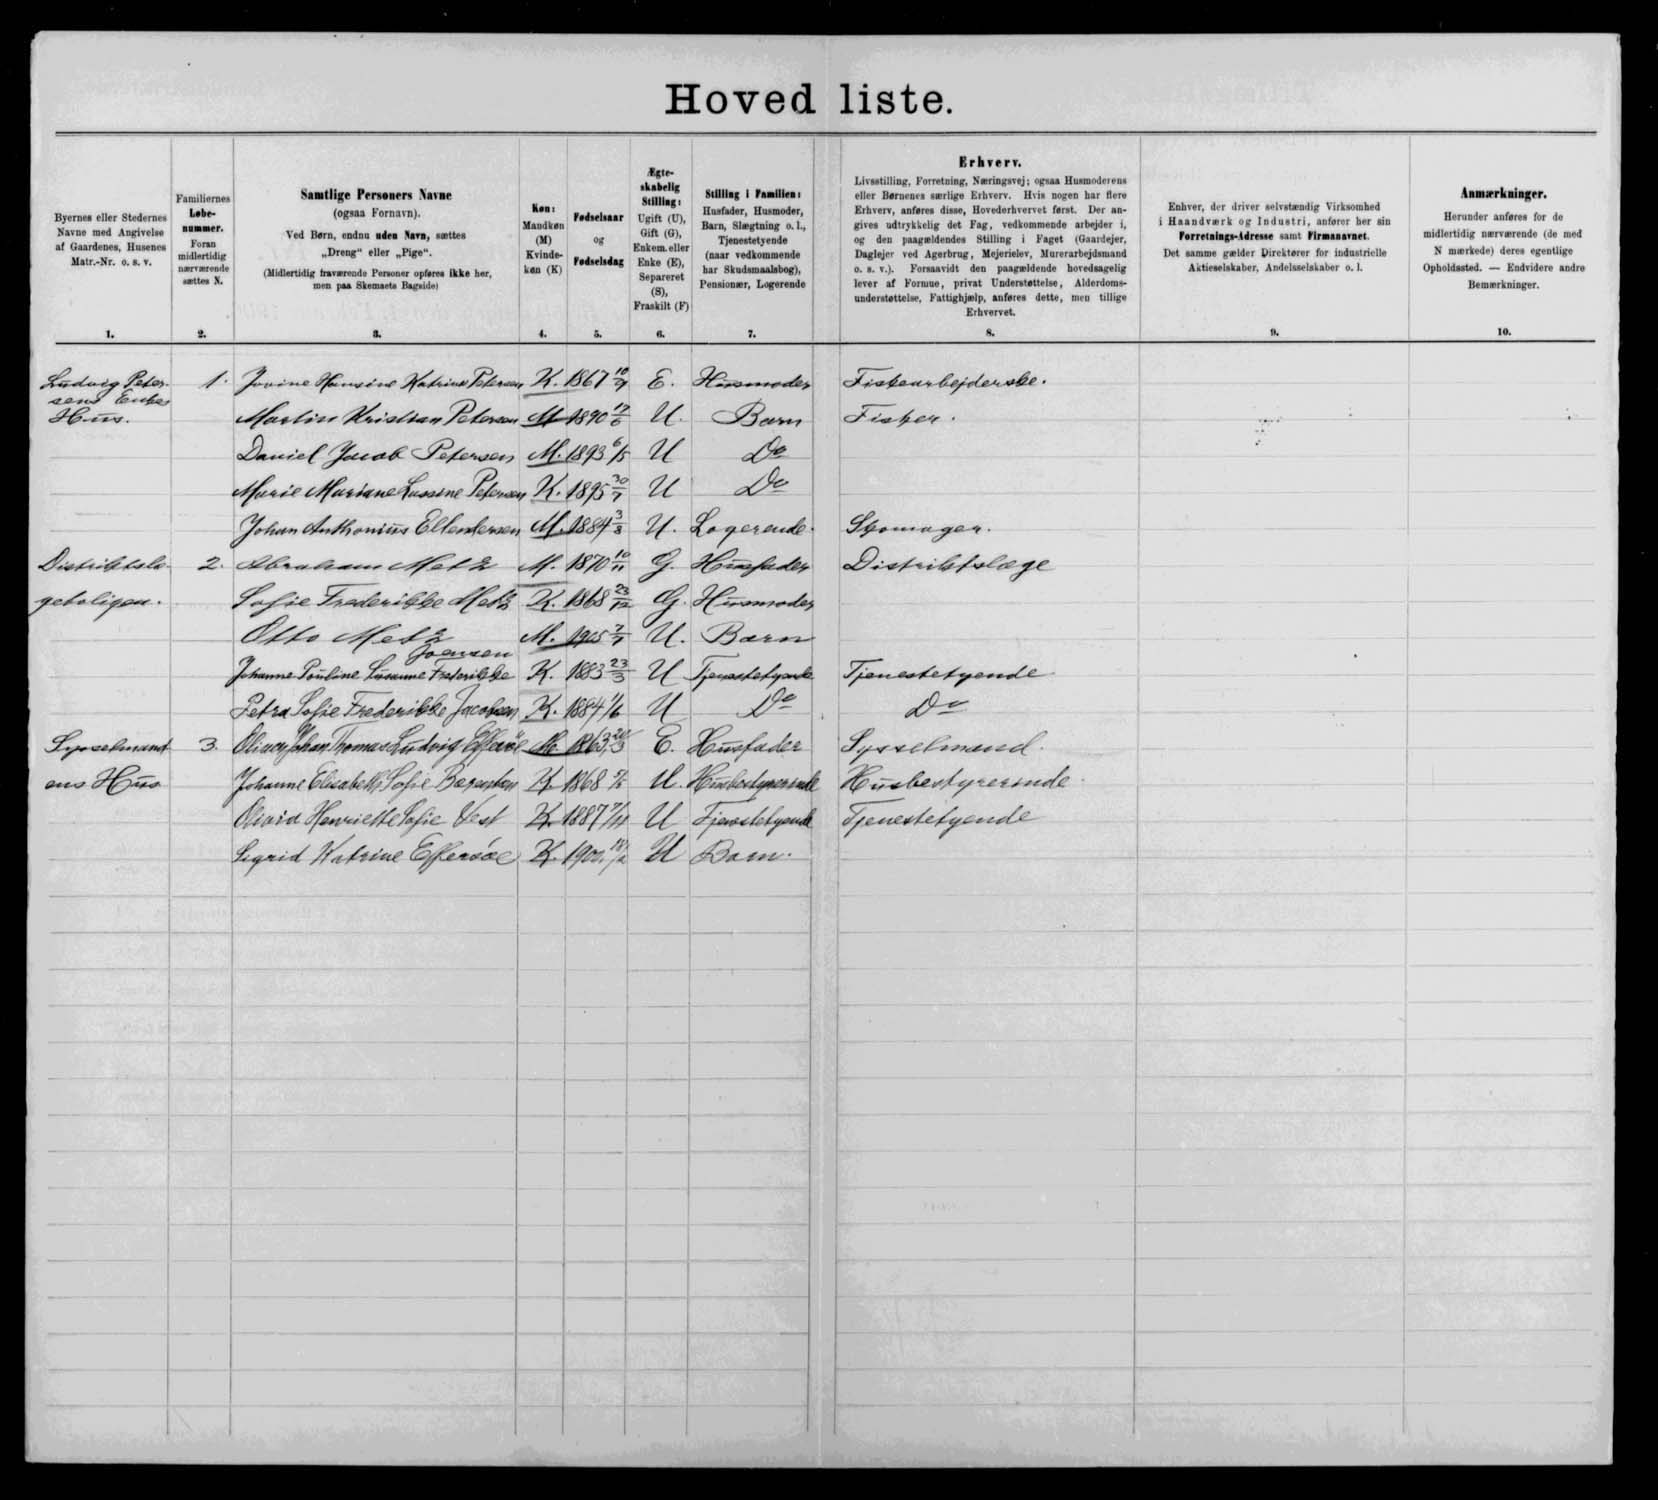 Hovedliste.
Byernes eller Stedernes
Navne med Angivelse
af Gaardenes, Husenes
Matr.-Nr. o. s. v.
1.
Familiernes
Løbe-
nummer.
Foran
midlertidig
nærværende
sættes N.
2.
Samtlige Personers Navne
(ogsaa Fornavn).
Ved Børn, endnu uden Navn, sættes
„Dreng“ eller „Pige“.
(Midlertidig fraværende Personer opføres ikke her,
men paa Skemaets Bagside)
3.
Køn:
Mandkøn
(M)
Kvinde-
køn (K)
4.
Fødselsaar
og
Fødselsdag
5.
Ægte-
skabelig
Stilling:
Ugift (U),
Gift (G),
Enkem. eller
Enke (E),
Separeret
(S),
Fraskilt (F)
6.
Stilling i Familien:
Husfader, Husmoder,
Barn, Slægtning o. l.,
Tjenestetyende
(naar vedkommende
har Skudsmaalsbog),
Pensionær, Logerende
7.
Erhverv.
Livsstilling, Forretning, Næringsvej; ogsaa Husmoderens
eller Børnenes særlige Erhverv. Hvis nogen har flere
Erhverv, anføres disse, Hovederhvervet først. Der an-
gives udtrykkelig det Fag, vedkommende arbejder i,
og den paagældendes Stilling i Faget (Gaardejer,
Daglejer ved Agerbrug, Mejerielev, Murerarbejdsmand
o. s. v.). Forsaavidt den paagældende hovedsagelig
lever af Formue, privat Understøttelse, Alderdoms-
understøttelse, Fattighjælp, anføres dette, men tillige
Erhvervet.
8.
Enhver, der driver selvstændig Virksomhed
i Haandværk og Industri, anfører her sin
Forretnings-Adresse samt Firmanavnet.
Det samme gælder Direktører for industrielle
Aktieselskaber, Andelsselskaber o. l.
9.
Anmærkninger.
Herunder anføres for de
midlertidig nærværende (de med
N mærkede) deres egentlige
Opholdssted. — Endvidere andre
Bemærkninger.
10.
Ludvig Peter- 1. Jovine Hansine Katrine Petersen K. 1867 10/9 E. Husmoder Fiskearbejderske.
sens Enkes
Hus. Martin Kristian Petersen M 1890 17/6 U. Barn Fisker.
Daniel Jacob Petersen M. 1893 6/5 U Do
Marie Mariane Lassine Petersen K. 1895 30/7 U Do
Johan Anthonius Ellendersen M. 1884 3/8 U. Logerende. Skomager.
Distriktslæ- 2. Abraham Metz M. 1870 10/11 G. Husfader Distriktslæge
geboligen. Sofie Frederikke Metz K. 1868 23/12 G. Husmoder
Otto Metz M. 1905 7/7 U. Barn
Joensen
Johanne Pouline Susanne Frederikke K. 1883 23/3 U Tjenestetyende Tjenestetyende
Petra Sofie Frederikke Jacobsen K. 1884 1/6 U Do Do
Sysselmand 3. Oliver Johan Thomas Ludvig Effersøe M. 1863 20/3 E. Husfader Sysselmand.
ens Hus Johanne Elisabeth Sofie K. 1868 U. Husbestyrerinde Husbestyrerinde.
Olivia Henriette Sofie Vest K. 1887 7/11 U Tjenestetyende Tjenestetyende
Sigrid Katrine Effersøe K. 1900 U Barn.